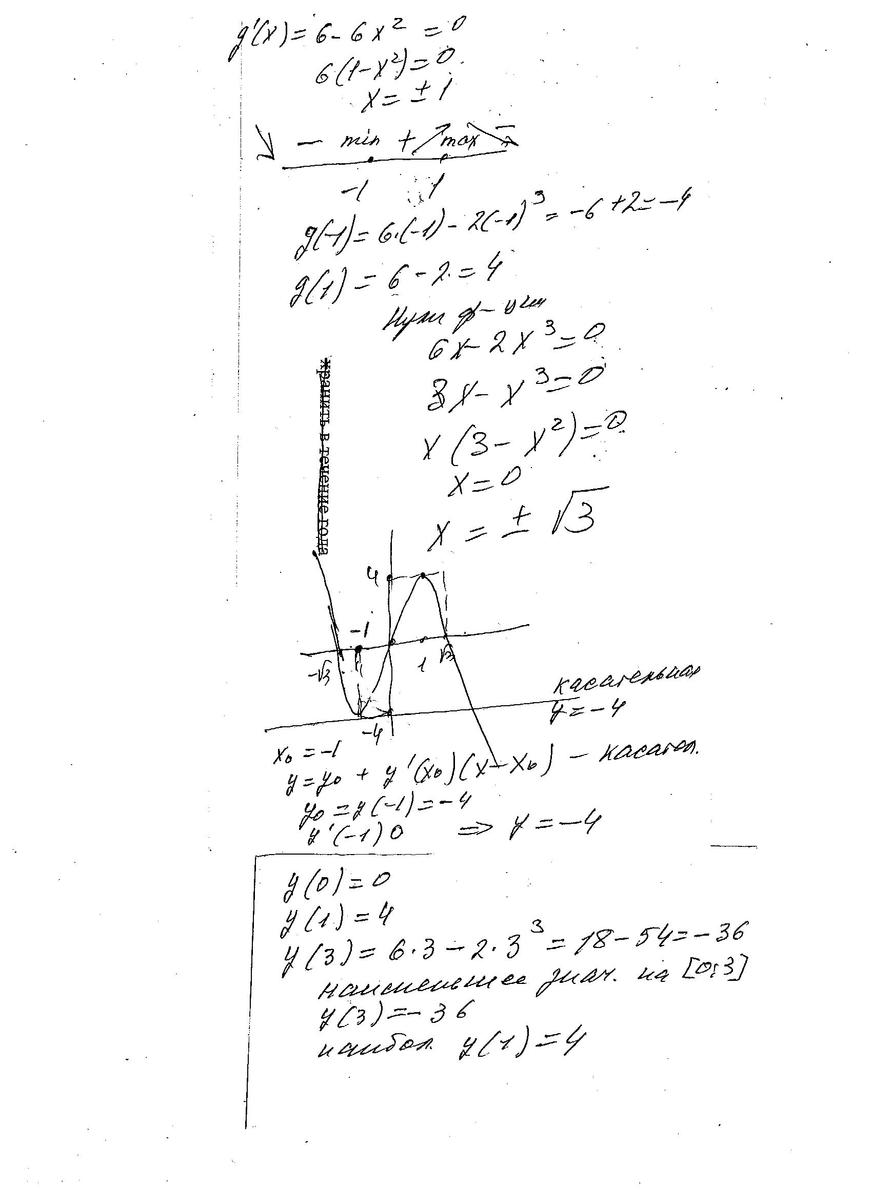 g'(x) = 6 - 6x² = 0
6(1-x²) = 0.
x = ± 1
↘ - min + ↗ max - ↘
-1 1
g(-1) = 6·(-1) - 2(-1)³ = -6 + 2 = -4
g(1) = 6 - 2 = 4
Нули ф-ции
6x - 2x³ = 0
3x - x³ = 0
x(3 - x²) = 0
x = 0
x = ± √3
хранить в течение года
4
-1
-√3 1 √3
-4
касательная
y = -4
x₀ = -1
y = y₀ + y'(x₀)(x - x₀) - касател.
y₀ = y(-1) = -4
y'(-1) 0 ⇒ y = -4
y(0) = 0
y(1) = 4
y(3) = 6·3 - 2·3³ = 18 - 54 = -36
наименьшее знач. на [0;3]
y(3) = -36
наибол. y(1) = 4